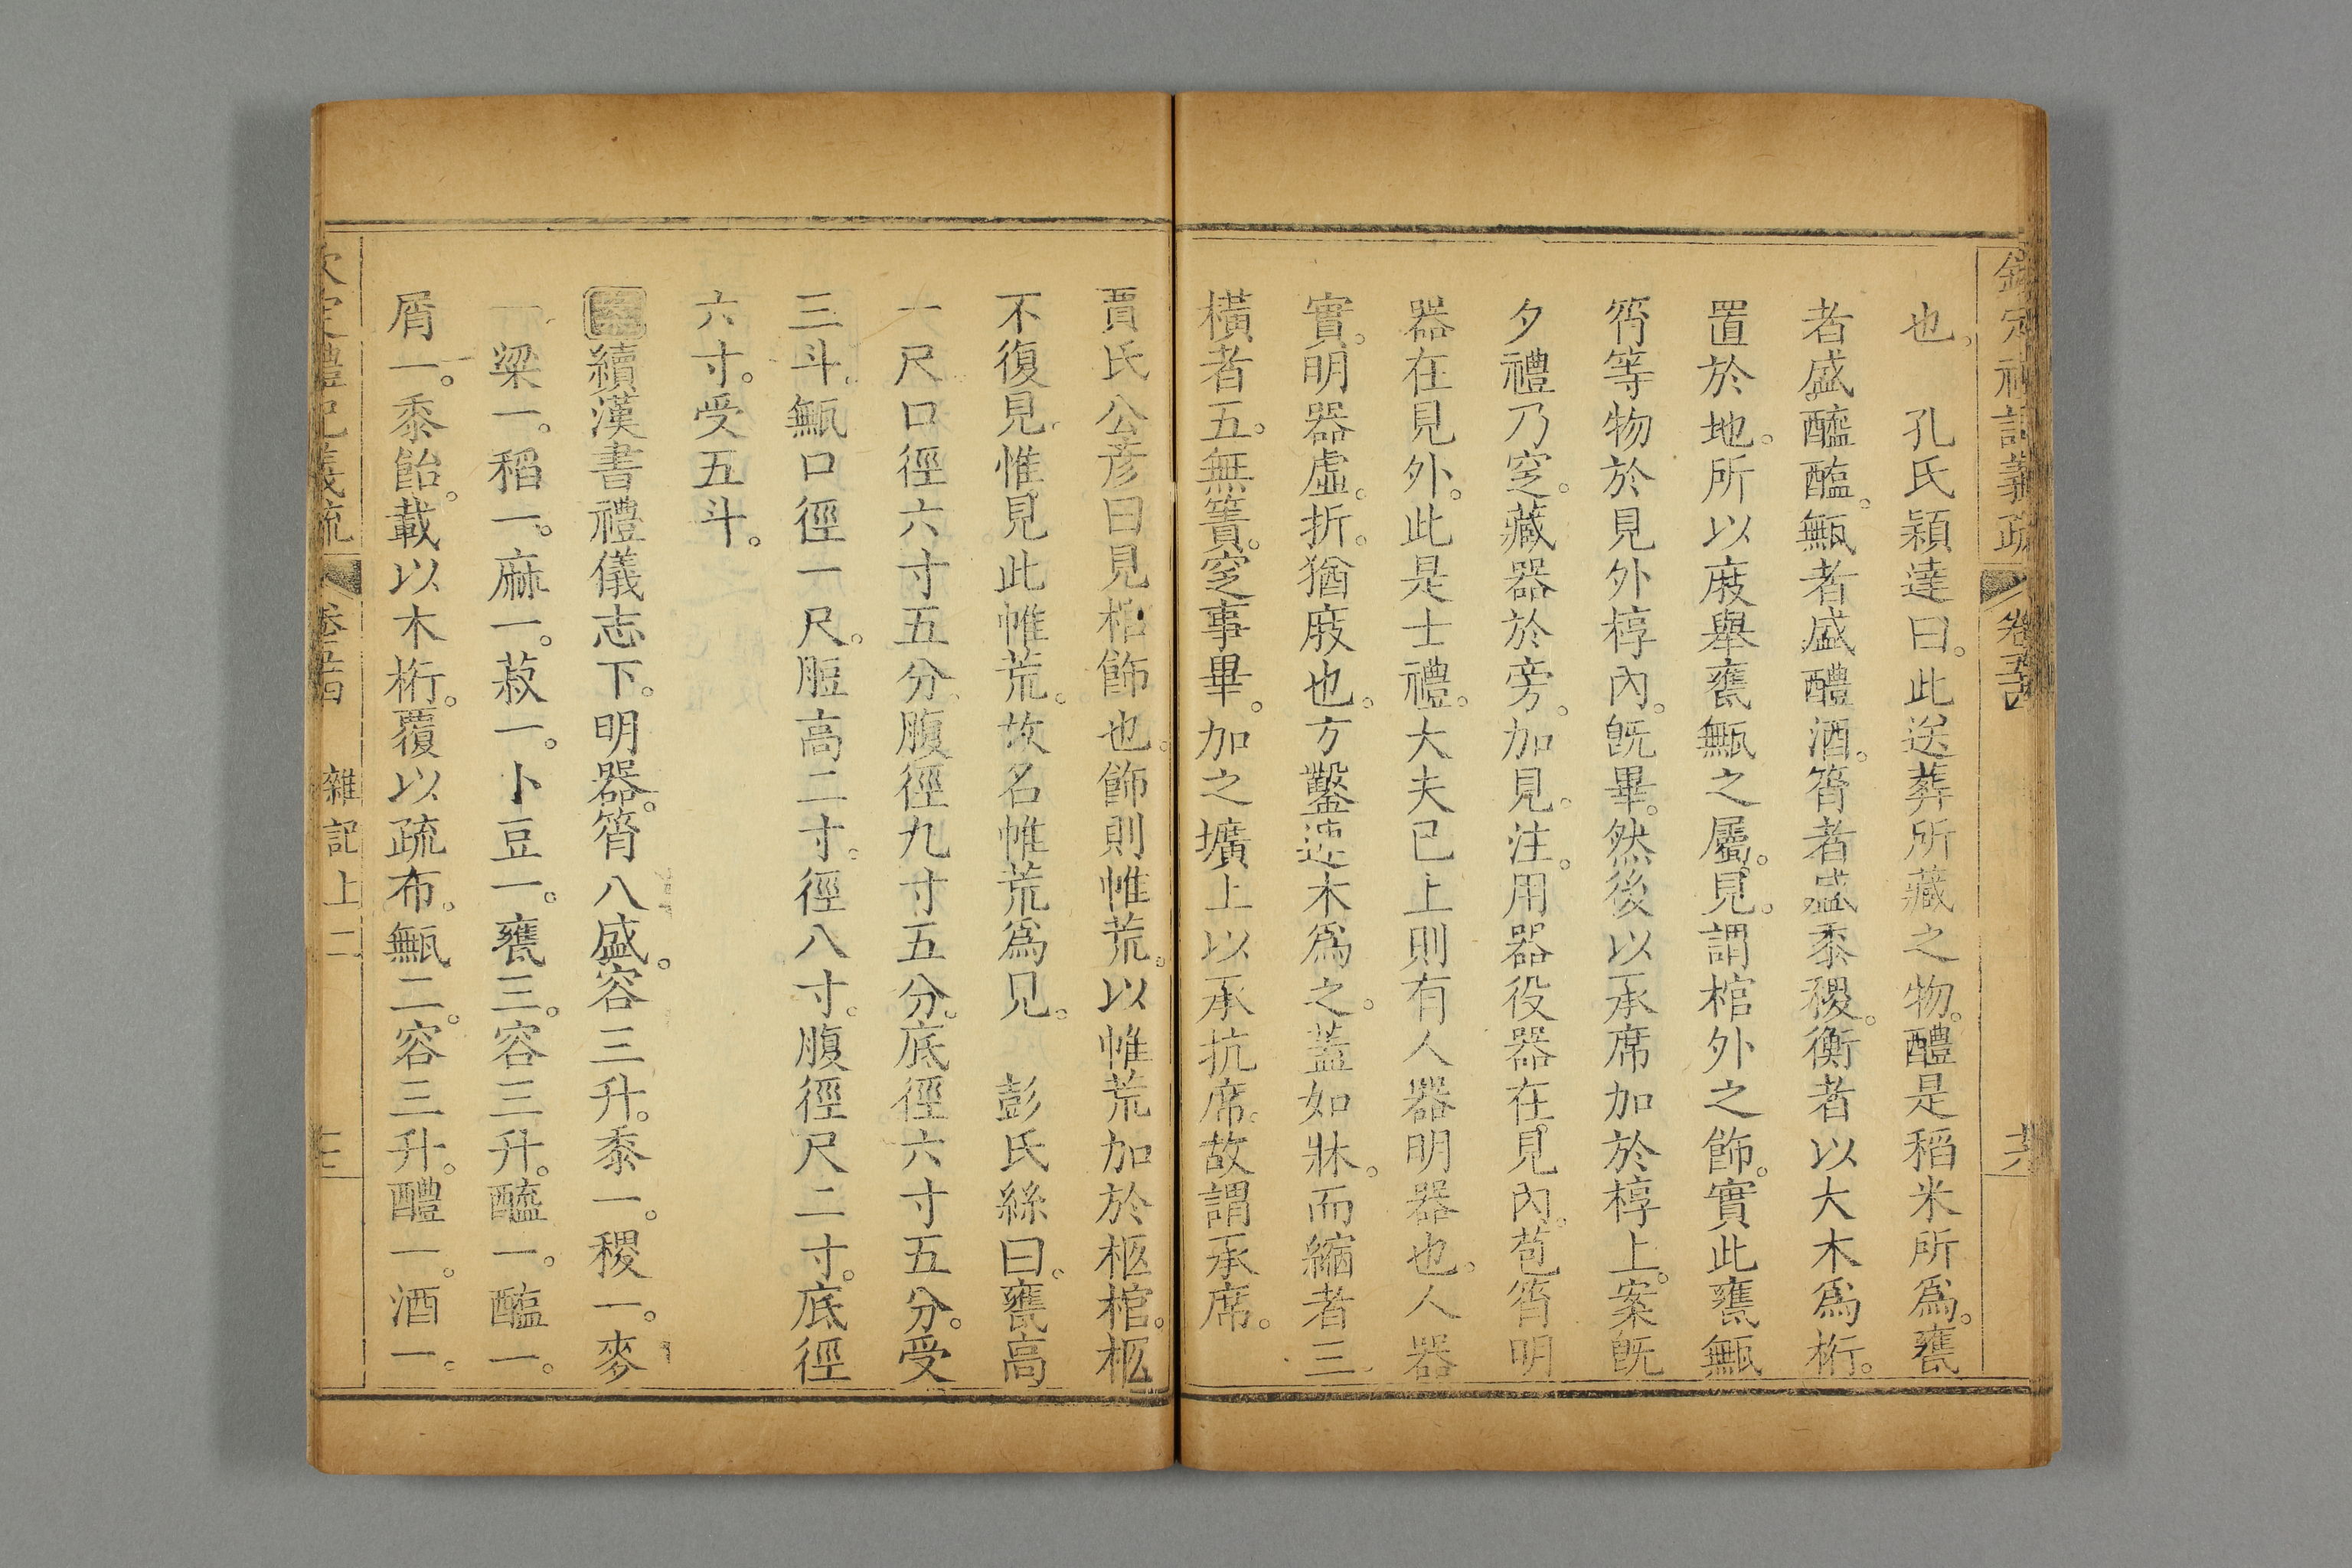 欽定禮記義疏 卷五十四 六
也。 孔氏穎達曰。此送葬所藏之物。醴是稻米所爲。罋
者盛醯醢。甒者盛醴酒。筲者盛黍稷。衡者以大木爲桁。
置於地。所以庪舉罋甒之屬。見。謂棺外之飾。實此罋甒
筲等物於見外椁內。旣畢。然後以承席加於椁上。案旣
夕禮乃窆。藏器於旁。加見。注。用器役器在。見內。苞筲明
器在見外。此是士禮。大夫已上則有人器明器也。人器
實。明器虛。折。猶庪也。方鑿連木爲之。蓋如牀。而縮者三
橫者五。無簀。窆事畢。加之壙上以承抗席。故謂承席。
賈氏公彥曰見棺飾也。飾則帷荒。以帷荒加於柩棺。柩
不復見。惟見此帷荒。故名帷荒爲見。 彭氏絲曰。罋高
一尺。口徑六寸五分。腹徑九寸五分。底徑六寸五分。受
三斗。甒口徑一尺。脰高二寸。徑八寸。腹徑尺二寸。底徑
六寸。受五斗。
案續漢書禮儀志下。明器。筲八盛。容三升。黍一。稷一。麥
一梁一。稻一。麻一。菽一。卜豆一。罋三。容三升。醯一。醢一。
屑一。黍飴。載以木桁。覆以疏布。甒二。容三升。醴一。酒一。
欽定禮記義疏 雜記上二